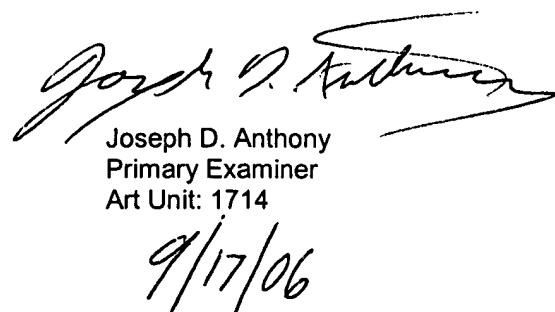 Joseph D. Anthony
Joseph D. Anthony
Primary Examiner
Art Unit: 1714
9/17/06